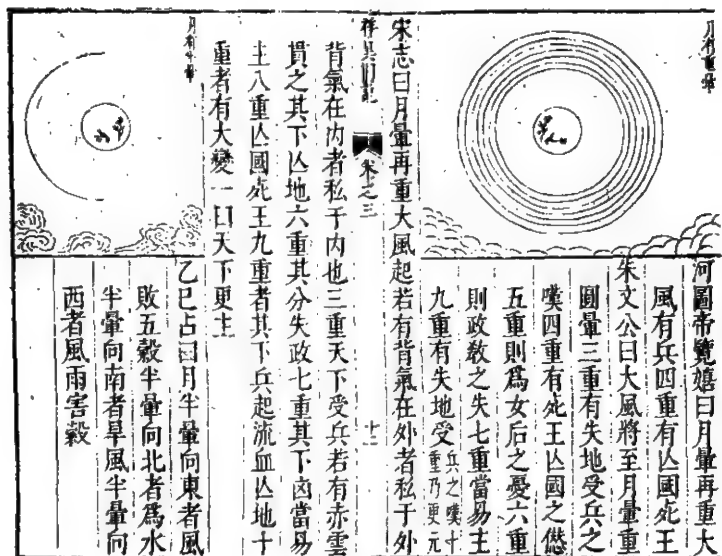 月有重暈
河圖帝覽嬉曰月暈再重大
風有兵四重有亾國死王
朱文公曰大風將至月暈重
圓暈三重有失地受兵之
嘆四重有死王亾國之愆
五重則爲女后之憂六重
則政教之失七重當易主
九重有失地受兵之嘆十
重乃更元
宋志曰月暈再重大風起若有背氣在外者私于外
祥異 之三 十二
背氣在内者私于内也三重天下受兵若有赤雲
貫之其下亾地六重其分失政七重其下凶當易
主八重亾國死王九重者其下兵起流血亾地十
重者有大變一曰天下更主
月有半暈
乙巳占曰月半暈向東者風
敗五穀半暈向北者爲水
半暈向南者旱風半暈向
西者風雨害穀